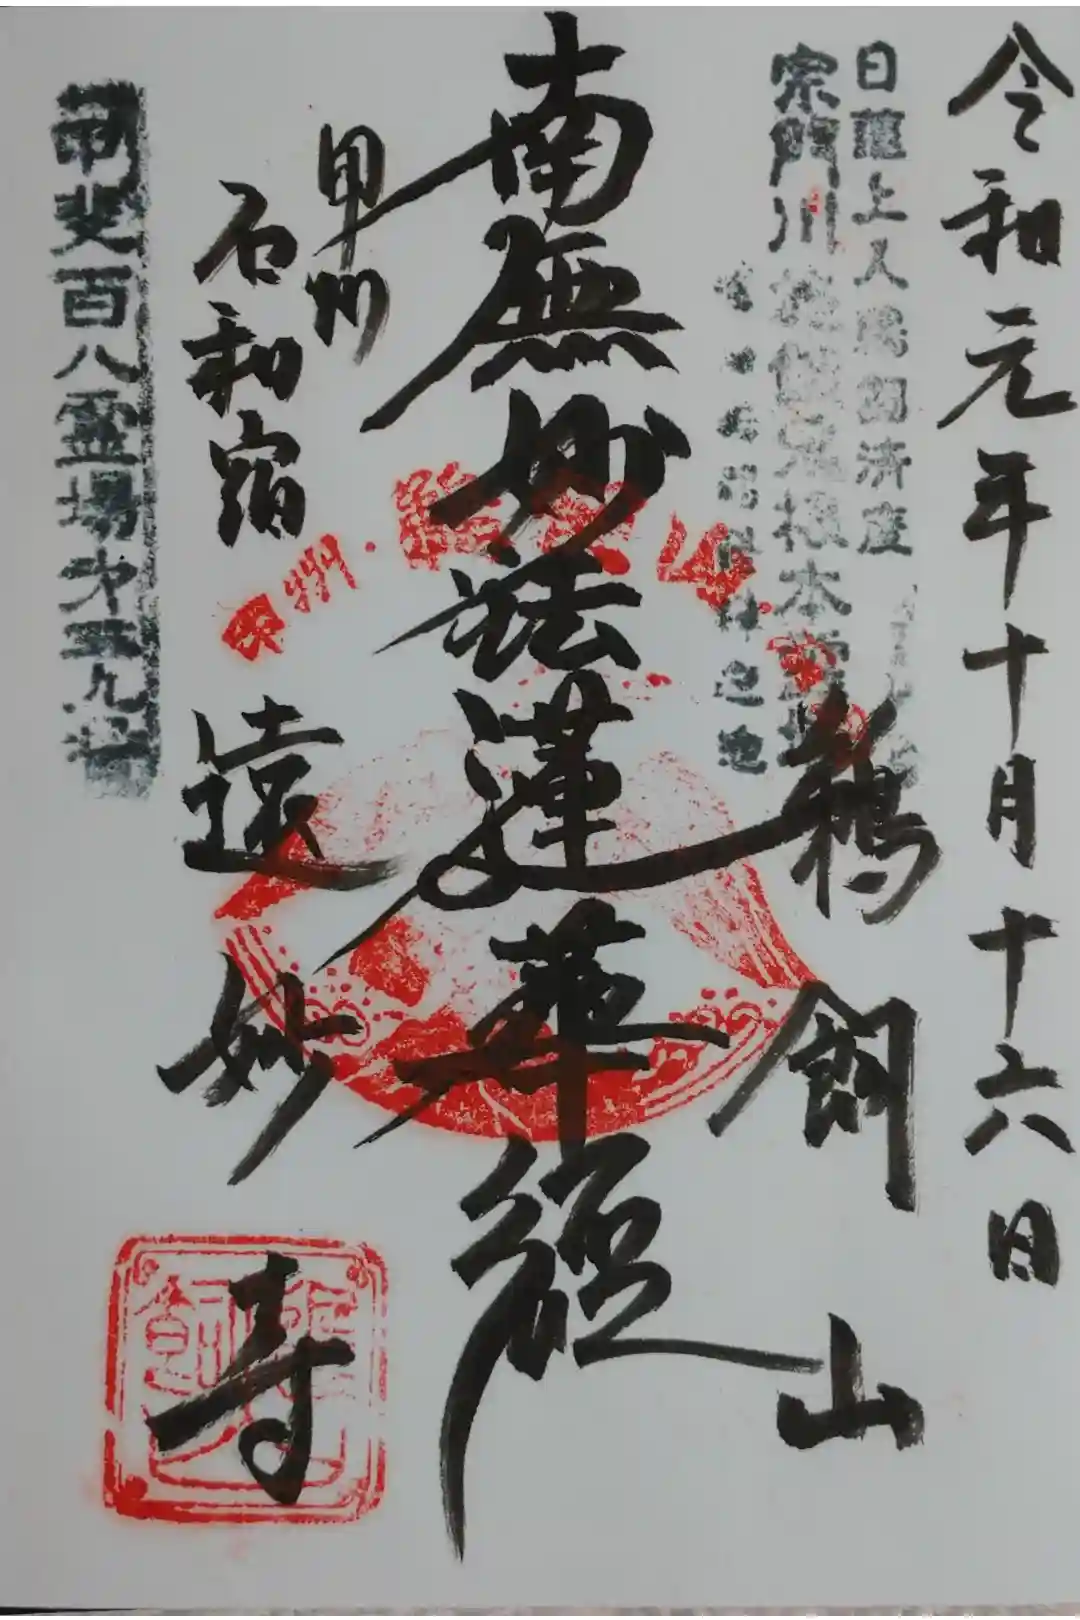 令和元年十月十六日
日蓮上人
済度
宗門川施餓鬼根本
鵜飼山
南無妙法蓮華経
甲州
石和宿
遠妙寺
甲州・鵜飼山
甲斐百八霊場第五九番